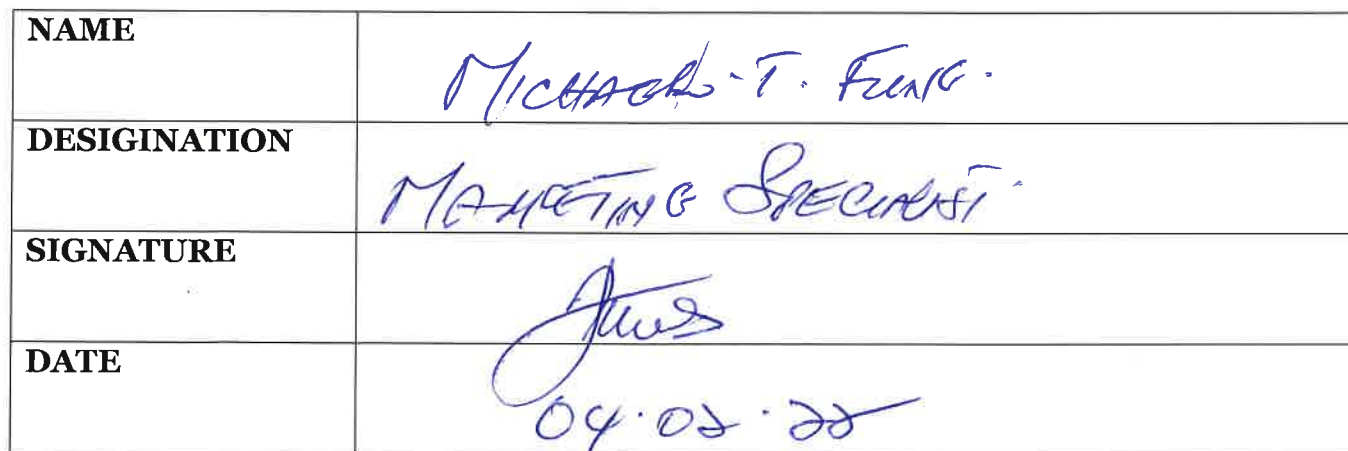 NAME
MICHAEL T. FUNG.
DESIGINATION
MARKETING SPECIALIST.
SIGNATURE
DATE
04.02.22